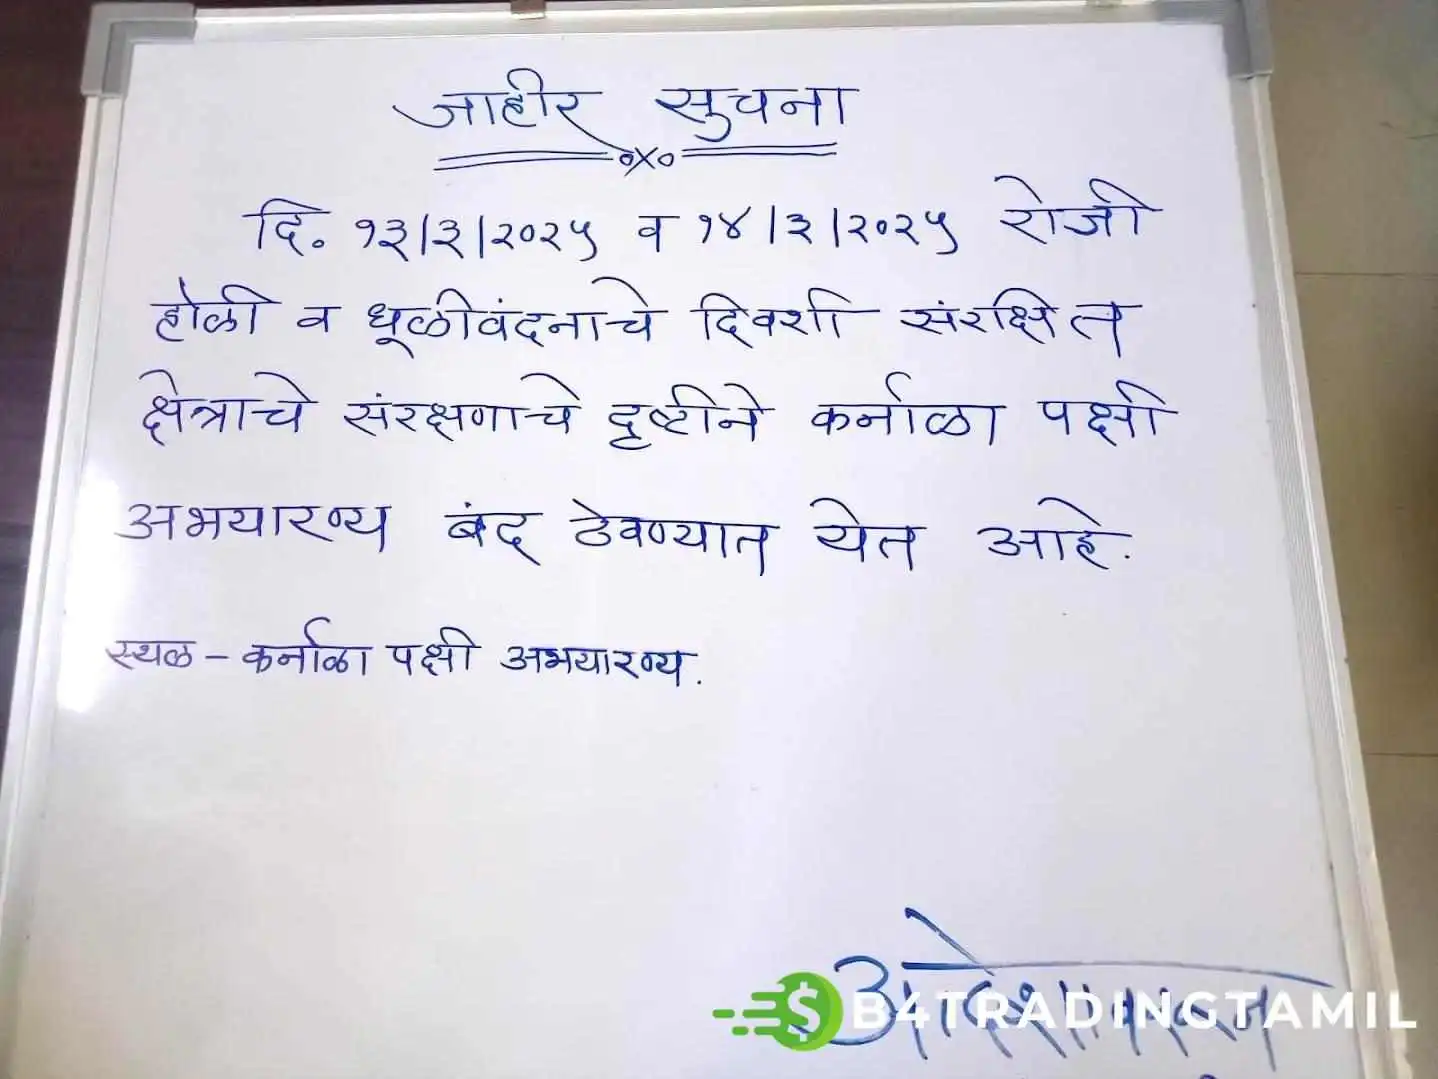 जाहीर सुचना
दि. १३/३/२०२५ व १४/३/२०२५ रोजी
होळी व धूळीवंदनाचे दिवशी संरक्षित
क्षेत्राचे संरक्षणाचे दृष्टीने कर्नाळा पक्षी
अभयारण्य बंद ठेवण्यात येत आहे.
स्थळ - कर्नाळा पक्षी अभयारण्य.
आदेशावरून
B4TRADINGTAMIL